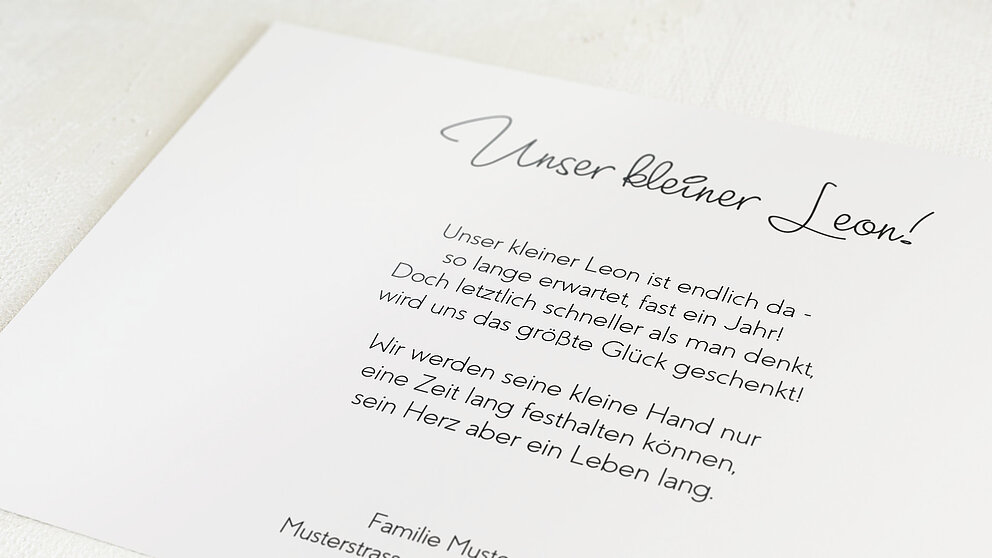 Unser kleiner Leon!
Unser kleiner Leon ist endlich da -
so lange erwartet, fast ein Jahr!
Doch letztlich schneller als man denkt,
wird uns das größte Glück geschenkt!
Wir werden seine kleine Hand nur
eine Zeit lang festhalten können,
sein Herz aber ein Leben lang.
Familie Muste
Musterstrass